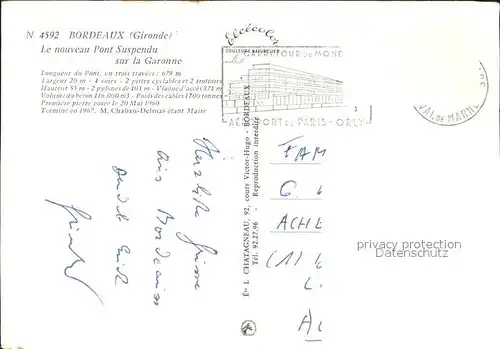 N 4592 BORDEAUX (Gironde)
Le nouveau Pont Suspendu
sur la Garonne
Longueur du Pont, en trois travées : 679 m
Largeur 20 m - 4 voies - 2 pistes cyclables et 2 trottoirs
Hauteur 55 m - 2 pylones de 103 m - Viaduc d'accès 871 m
Volume du béton 116.000 m3 - Poids des cables 1700 tonnes
Première pierre posée le 20 Mai 1960
Termine en 1967, M. Chaban-Delmas étant Maire
Elcécolor
COULEURS NATURELLES
CARREFOUR DU MONDE
AEROPORT DE PARIS - ORLY
VAL DE MARNE
Éts J. CHATAGNEAU, 92, cours Victor-Hugo - BORDEAUX
Tél. 92.27.96 - Reproduction interdite
Herzliche Grüsse
aus Bordeaux
FAM
G.
ACHE
(1)
L.
A
privacy protection
Datenschutz